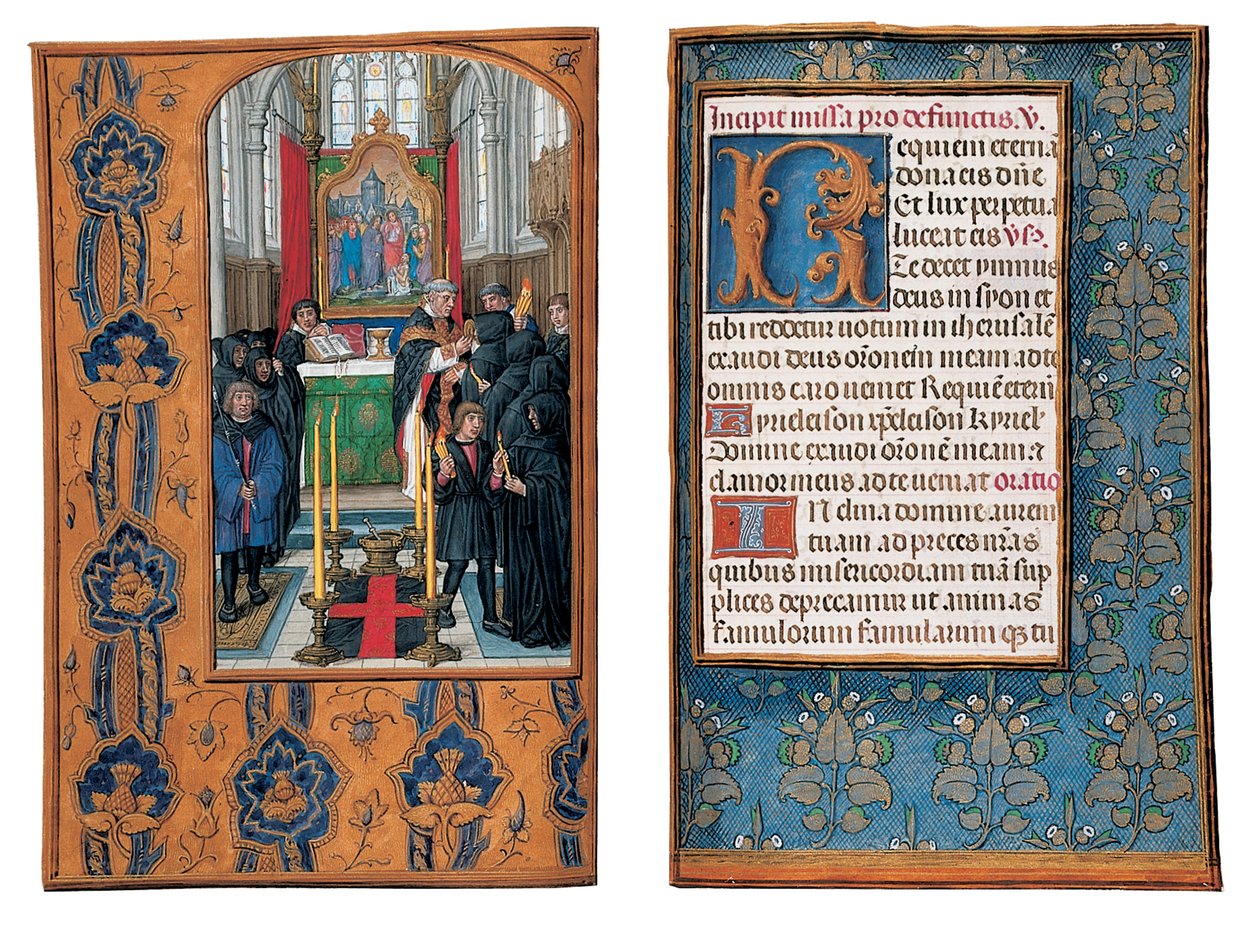 Incipit missa pro defunctis. V.
Requiem eternā
dona eis dn̄e
Et lux perpetua
luceat eis Vs̄.
Te decet ymnus
deus in syon et
tibi reddetur uotum in iherusalē
exaudi deus orōnem meam ad te
omnis caro ueniet Requiē eterā
Kyrieleison xp̄eleison Kyriel'
Domine exaudi orōnē meam a
clamor meus ad te ueniat oratio
INclina domine aurem
tuam ad preces nr̄as
quibus misericordiam tuā sup
plices deprecamur ut animas
famulorum famularum qȝ tu